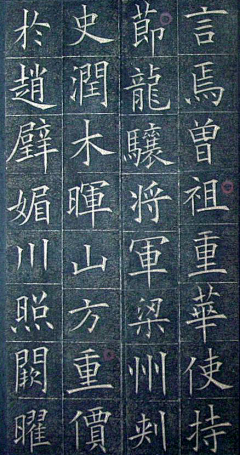 言焉曾祖重華使持
莭龍驤将軍梁州刾
史潤木暉山方重價
扵趙璧媚川照闕曜